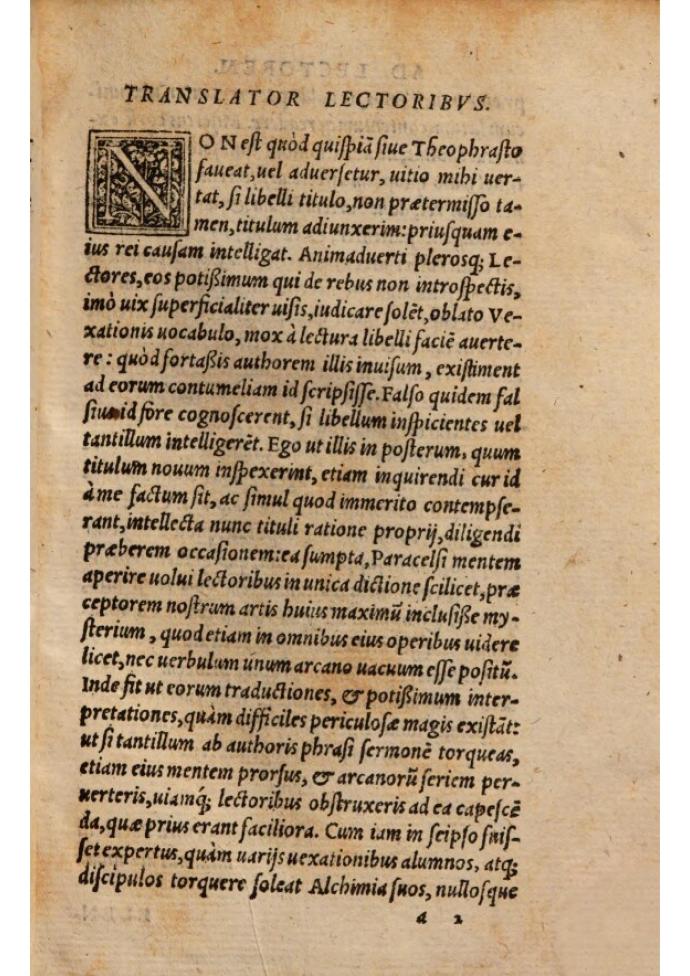 TRANSLATOR LECTORIBVS.
NON est quòd quispiã siue Theophrasto
faueat, uel aduersetur, uitio mihi uer-
tat, si libelli titulo, non prætermisso ta-
men, titulum adiunxerim: priusquam e-
ius rei causam intelligat. Animaduerti plerosq; Le-
ctores, eos potißimum qui de rebus non introspectis,
imò uix superficialiter uisis, iudicare solẽt, oblato Ve-
xationis uocabulo, mox à lectura libelli faciẽ auerte-
re: quòd fortaßis authorem illis inuisum, existiment
ad eorum contumeliam id scripsisse. Falso quidem fal
sium id fore cognoscerent, si libellum inspicientes uel
tantillum intelligerẽt. Ego ut illis in posterum, quum
titulum nouum inspexerint, etiam inquirendi cur id
à me factum sit, ac simul quod immerito contempse-
rant, intellecta nunc tituli ratione proprij, diligendi
præberem occasionem: ea sumpta, Paracelsi mentem
aperire uolui lectoribus in unica dictione scilicet, præ
ceptorem nostrum artis huius maximũ inclusiße my-
sterium, quod etiam in omnibus eius operibus uidere
licet, nec uerbulum unum arcano uacuum esse positũ.
Inde fit ut eorum traductiones, & potißimum inter-
pretationes, quàm difficiles periculosæ magis existãt:
ut si tantillum ab authoris phrasi sermonẽ torqueas,
etiam eius mentem prorsus, & arcanorũ seriem per-
uerteris, uiamq́; lectoribus obstruxeris ad ea capescẽ
da, quæ prius erant faciliora. Cum iam in seipso fuis-
set expertus, quàm uarijs uexationibus alumnos, atq;
discipulos torquere soleat Alchimia suos, nullosque
a 2